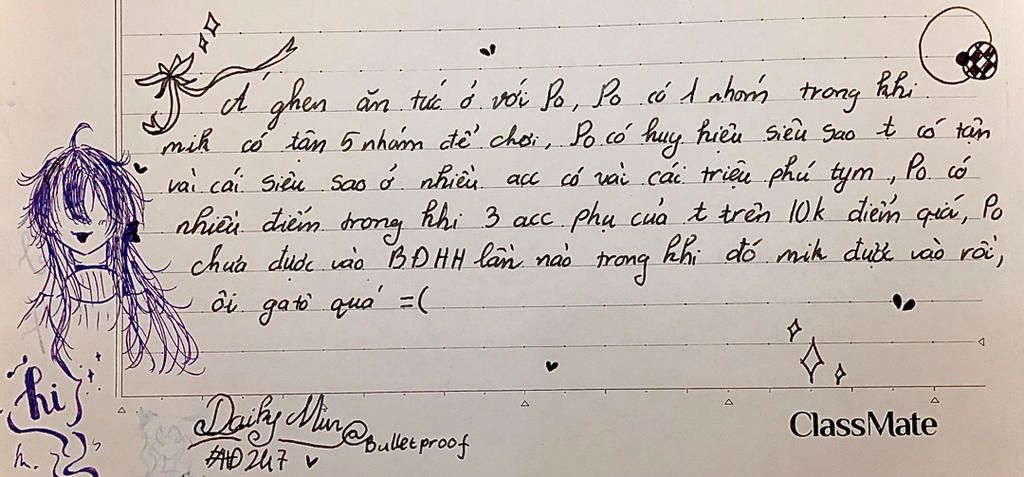 A ghen ăn tức ở với Po, Po có 1 nhóm trong khi
mik có tận 5 nhóm để chơi, Po có huy hiệu siêu sao t có tận
vài cái siêu sao ở nhiều acc có vài cái triệu phú tym, Po có
nhiều điểm trong khi 3 acc phụ của t trên 10k điểm quá, Po
chưa được vào BĐHH lần nào trong khi đó mik được vào rồi,
ôi gato quá =(
hi
m.
Daihy Min @Bulletproof
#AD247
ClassMate